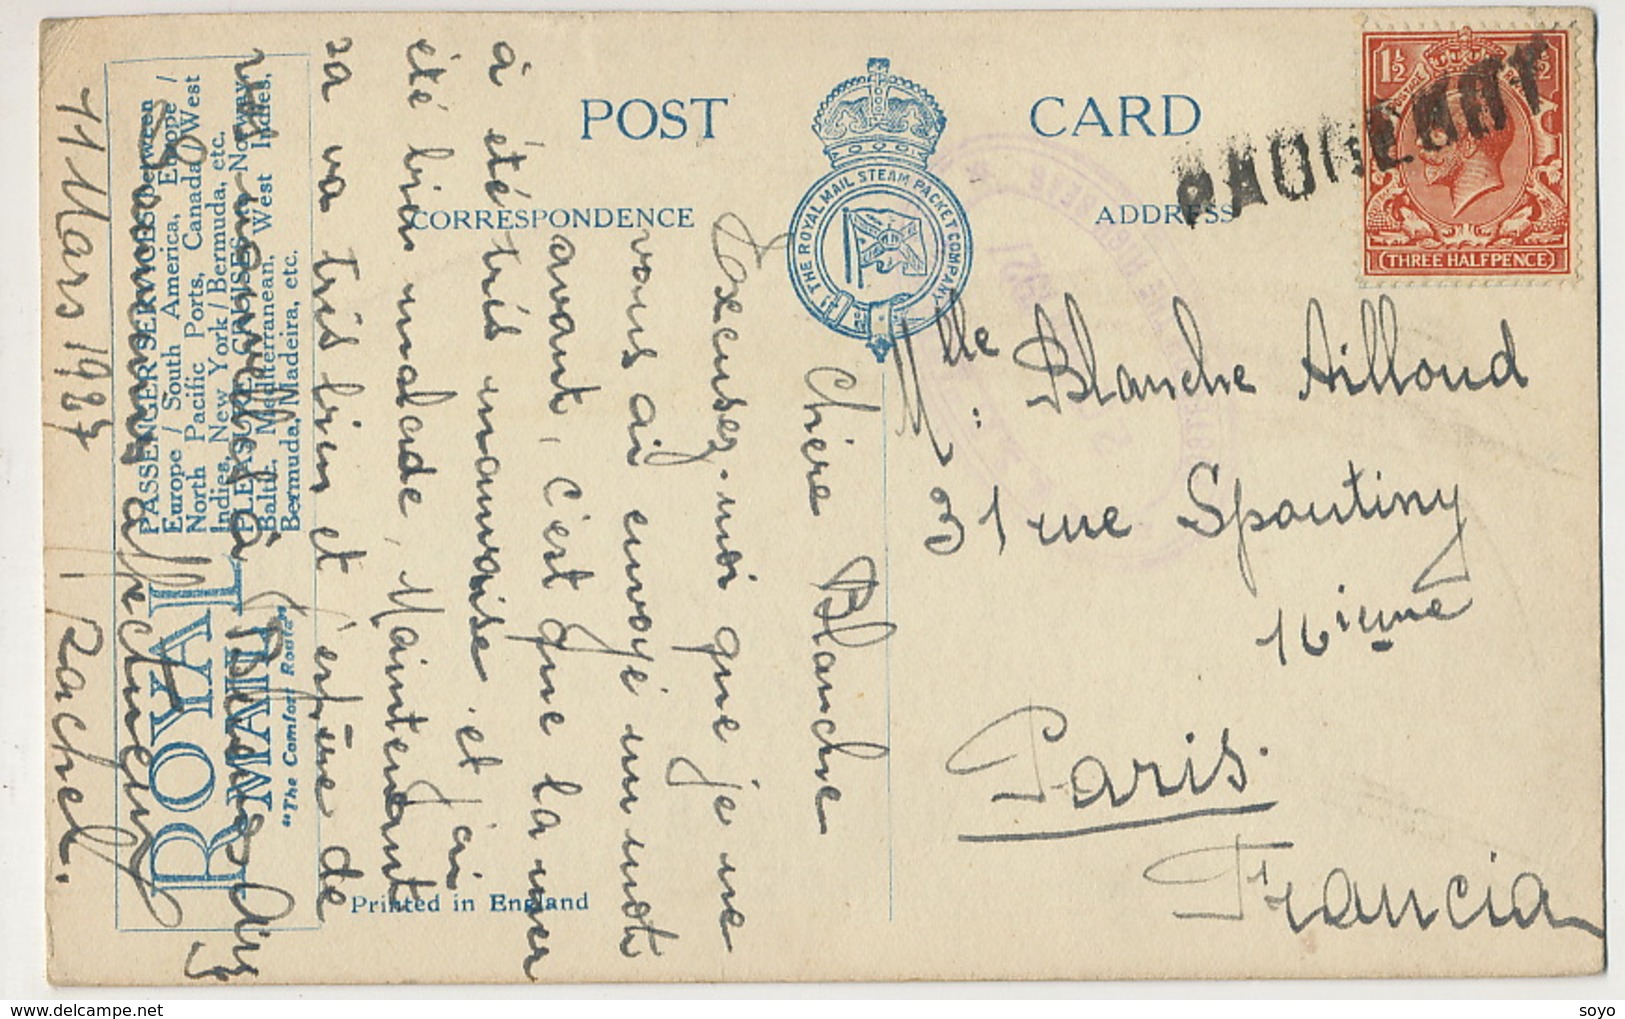 POST CARD
CORRESPONDENCE
ADDRESS
THE ROYAL MAIL STEAM PACKET COMPANY
PAQUEBOT
1½
THREE HALFPENCE
1927
Mlle: Blanche Ailloud
31 rue Spontiny
16ieme
Paris.
Francia
Chère Blanche
Excusez-moi que je ne
vous ai envoyé un mot
avant, c'est que la mer
à été très mauvaise et j'ai
été bien malade, Maintenant
sa va tres bien et j'espère de
vos nouvelles à
affectueux
11 Mars 1927 Rachel.
ROYAL
MAIL
"The Comfort Route"
PASSENGER SERVICES between
Europe / South America, Europe /
North Pacific Ports, Canada / West
Indies, New York / Bermuda, etc.
PLEASURE CRUISES. Norway,
Baltic, Mediterranean, West Indies,
Bermuda, Madeira, etc.
Printed in England
delcampe.net
soyo